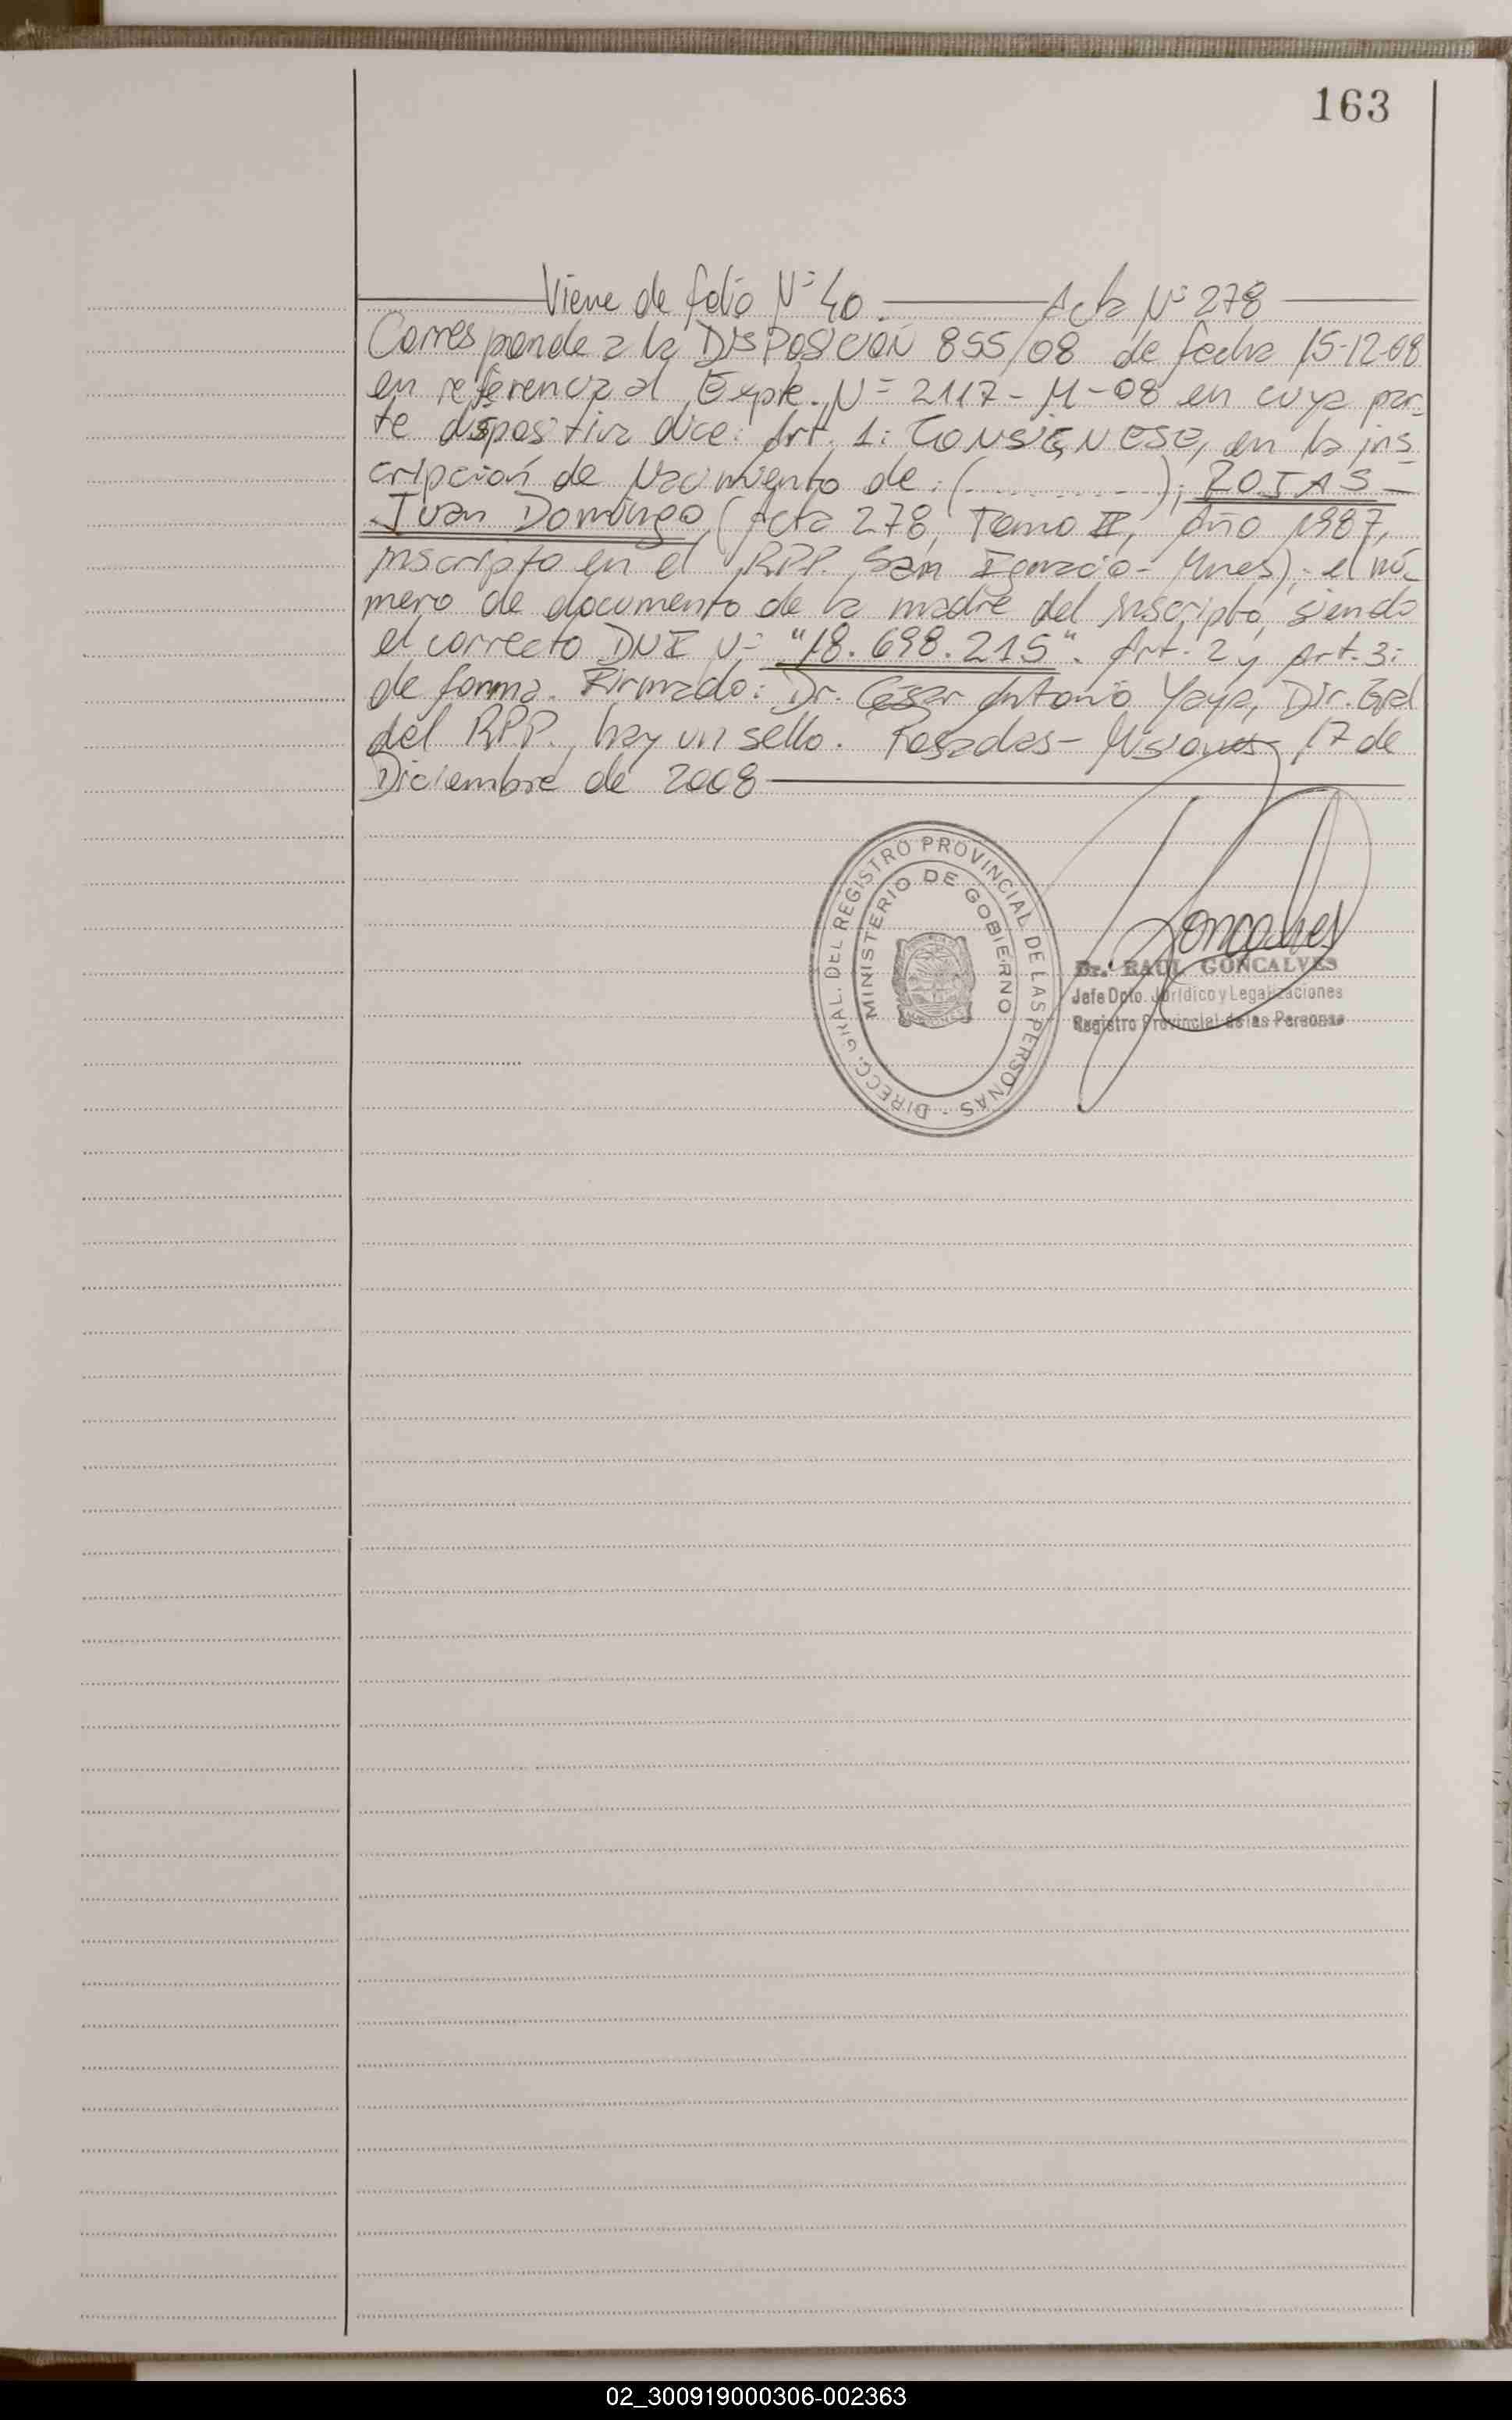 163
Viene de folio Nº 40. Acta Nº 278
Corresponde a la DISPOSICIÓN 855/08 de fecha 15-12-08
en referencia al Expte. Nº 2117-M-08 en cuya par-
te dispositiva dice: Art. 1: CONSIGNESE, en la ins-
cripción de Nacimiento de: (............); ROJAS -
Juan Domingo (Acta 278, Tomo II, Año 1987,
inscripto en el RPP. San Ignacio - Mnes); el nú-
mero de documento de la madre del inscripto, siendo
el correcto DNI Nº "18.698.215". Art. 2 y Art. 3:
de forma. Firmado: Dr. César Antonio Yaya, Dir. Gral
del RPP., hay un sello. Posadas - Misiones 17 de
Diciembre de 2008
DIRECC. GRAL. DEL REGISTRO PROVINCIAL DE LAS PERSONAS -
MINISTERIO DE GOBIERNO
Goncalves
Dr. RAUL GONCALVES
Jefe Dpto. Jurídico y Legalizaciones
Registro Provincial de las Personas
02_300919000306-002363